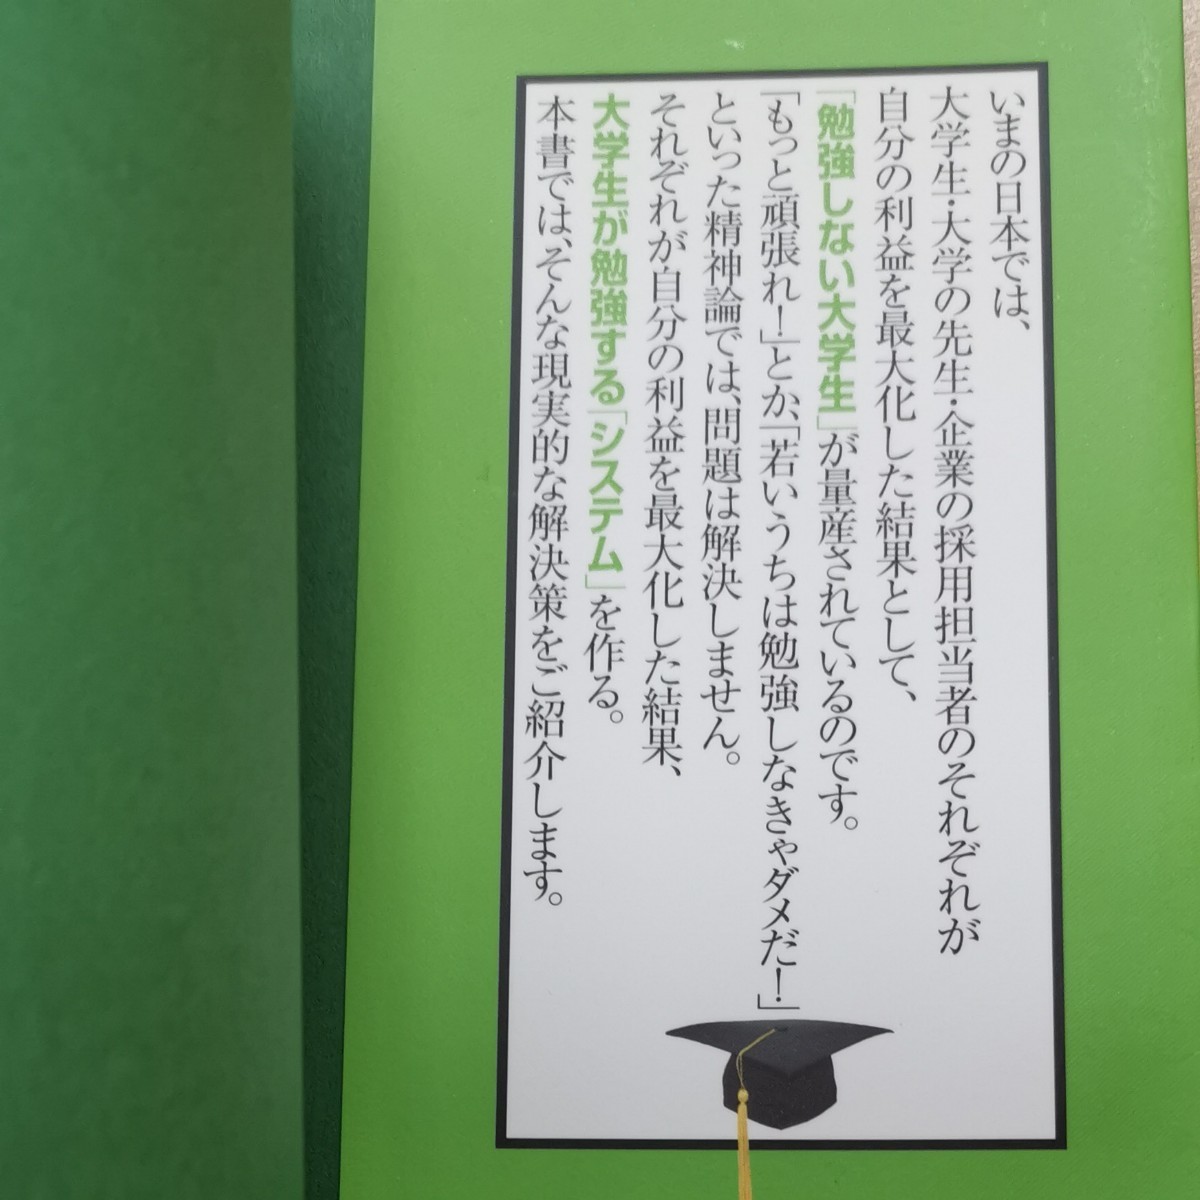 いまの日本では、
大学生・大学の先生・企業の採用担当者のそれぞれが
自分の利益を最大化した結果として、
「勉強しない大学生」が量産されているのです。
「もっと頑張れ!」とか、「若いうちは勉強しなきゃダメだ!」
といった精神論では、問題は解決しません。
それぞれが自分の利益を最大化した結果、
大学生が勉強する「システム」を作る。
本書では、そんな現実的な解決策をご紹介します。